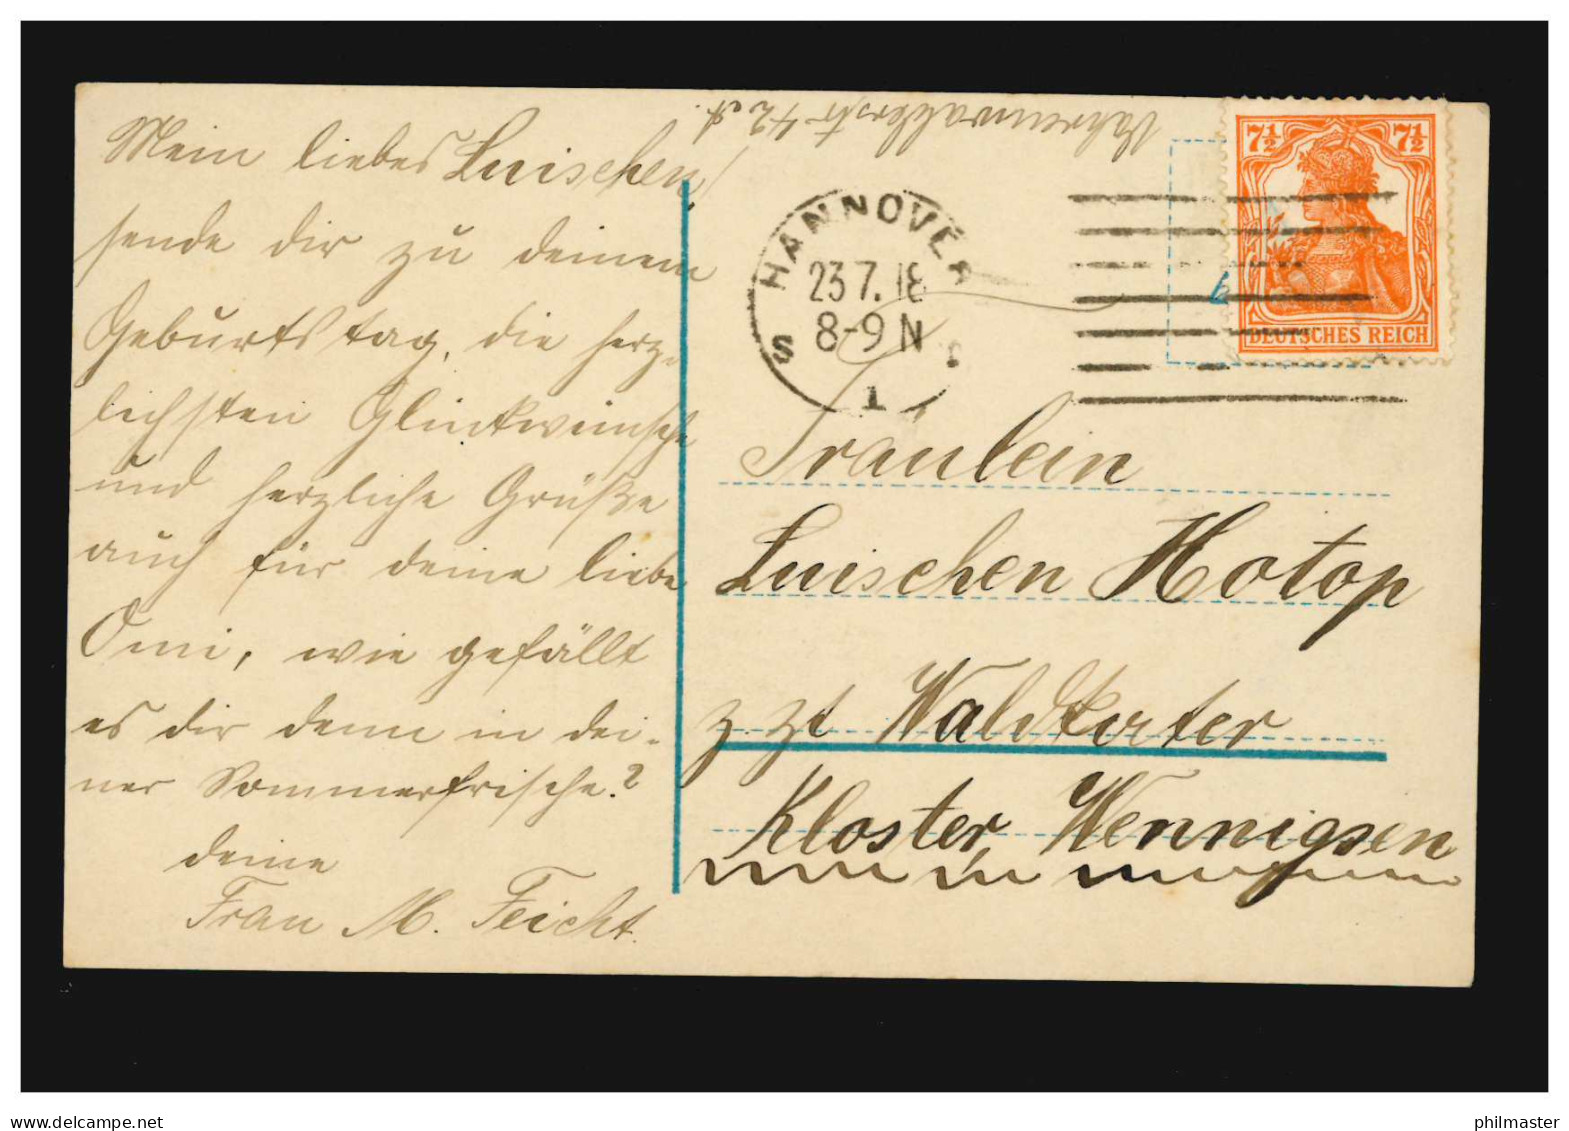 Mein liebes Luischen!
sende dir zu deinem
Geburtstag, die herz-
lichsten Glückwünsche
und herzliche Grüße
auch für deine liebe
Omi, wie gefällt
es dir denn in dei-
ner Sommerfrische?
deine
Frau M. Feicht.
Vahrenwalderstr 42
HANNOVER
23 7. 18
8-9 N
S 1
7½ 7½
DEUTSCHES REICH
Fräulein
Luischen Hotop
z. Zt Waldkater
Kloster Wennigsen
delcampe.net
philmaster